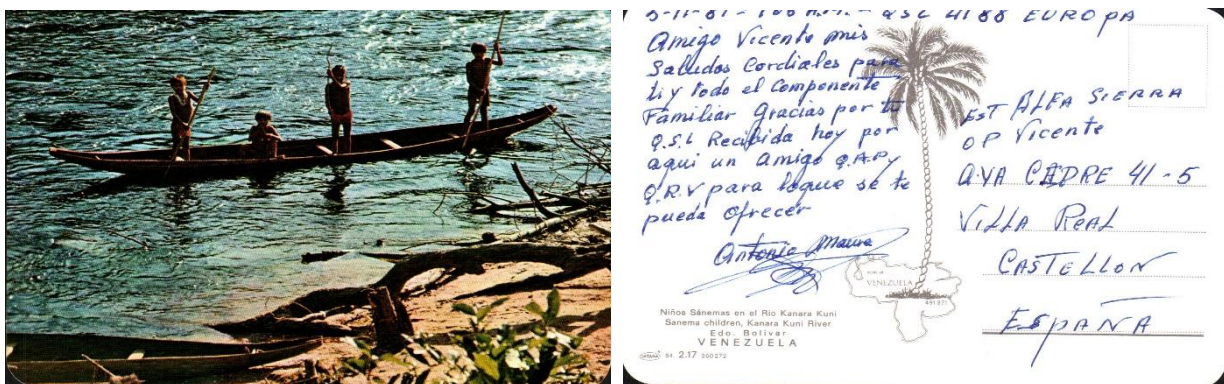 EUROPA
Amigo Vicente mis
Saludos Cordiales para
ti y todo el Componente
Familiar Gracias por tu
Q.S.L Recibida hoy por
aqui un Amigo Q.A.P y
Q.R.V para loque se te
pueda Ofrecer
Antonio Maura
EST ALFA SIERRA
OP Vicente
AVA CEDRE 41-5
VILLA REAL
CASTELLON
ESPAÑA
VENEZUELA
491 871
Niños Sánemas en el Río Kanara Kuni
Sanema children, Kanara Kuni River
Edo. Bolívar
VENEZUELA
64 2.17 260272